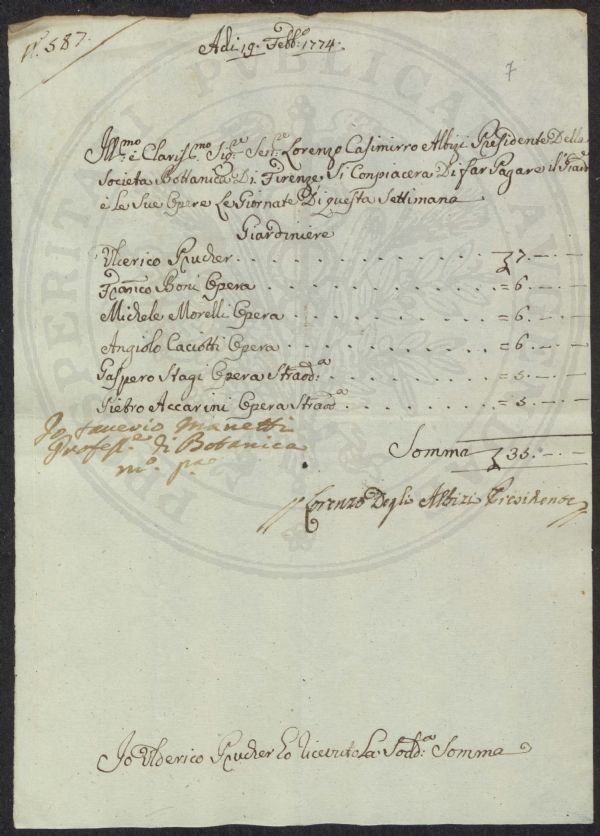 N.º 587.
Adi 19. Febb.º 1774.
7
Ill.mo e Claris.mo Sig.re Sen.re Lorenzo Casimirro Albizi Presidente Della
Societa Bottanica Di Firenze Si Conpiacera Di far Pagare il Giard
e Le Sue Opere Le Giornate Di questa Settimana
Giardiniere
Ulderico Prucher . . . . . . . . . . 7.—.—
Franco Boni Opera . . . . . . . . . . = 6.—.—
Michele Morelli Opera . . . . . . . . . . = 6.—.—
Angiolo Caciotti Opera . . . . . . . . . . = 6.—.—
Gaspero Stagi Opera Straod.a . . . . . . . . = 5.—.—
Pietro Accarini Opera Straod.a . . . . . . . . = 5.—.—
Io Saverio Manetti
Profess.e di Botanica
m.º p.a
Somma 35.—.—
Lorenzo Degli Albizi Presidente
Io Ulderico Prucher Ho Ricevuto La Sodd.a Somma
PROSPERITATI PUBLICAE AUCTAE